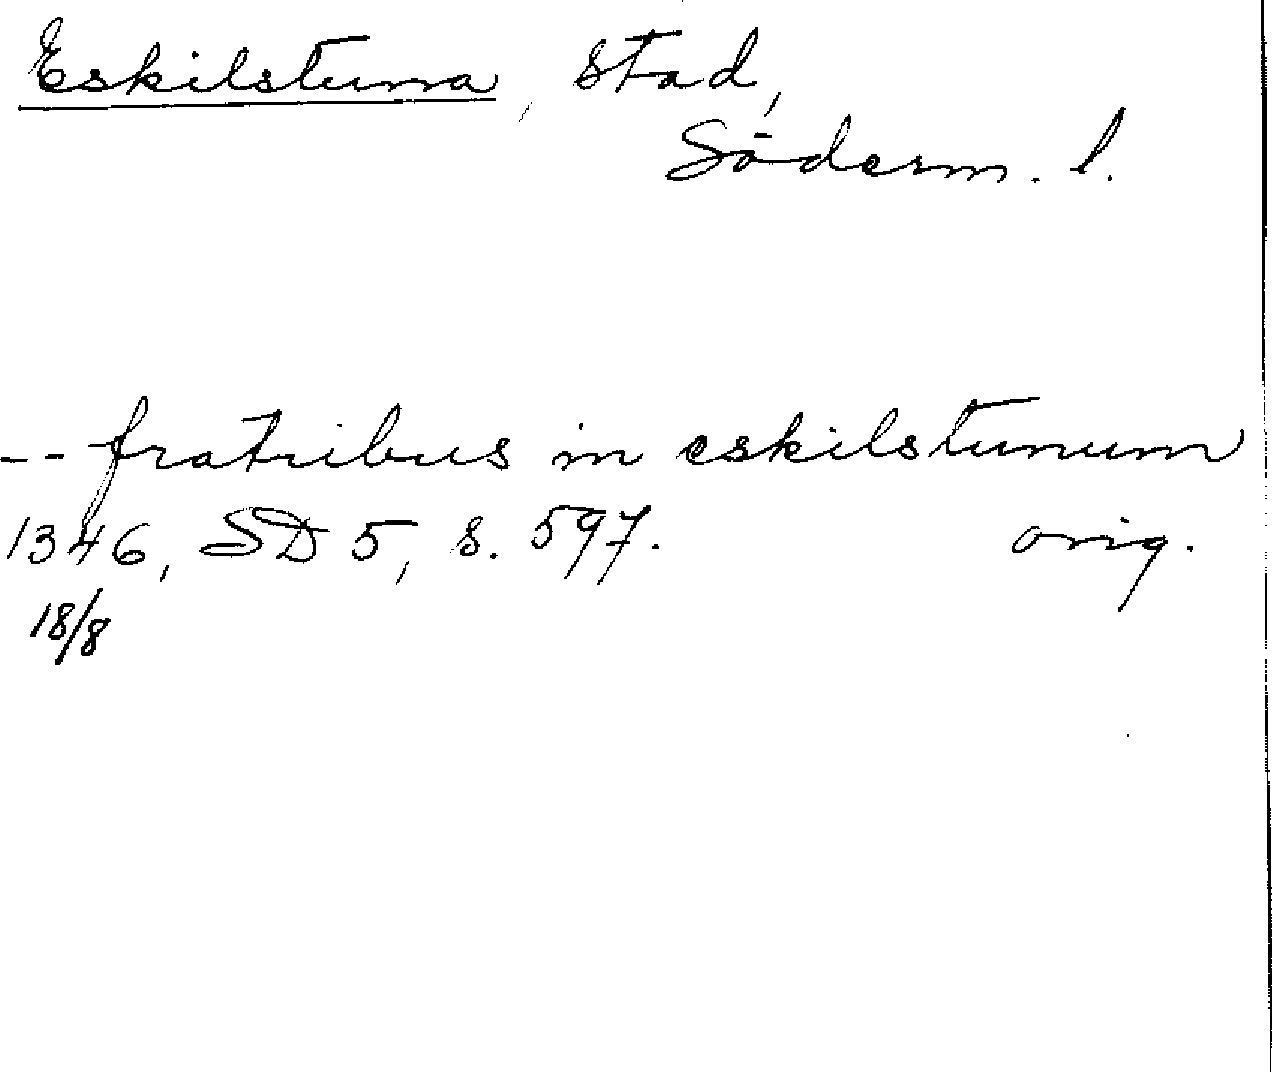 Eskilstuna, stad,
Söderm. l.
-- fratribus in eskilstunum
1346, SD 5, s. 597. orig.
18/8